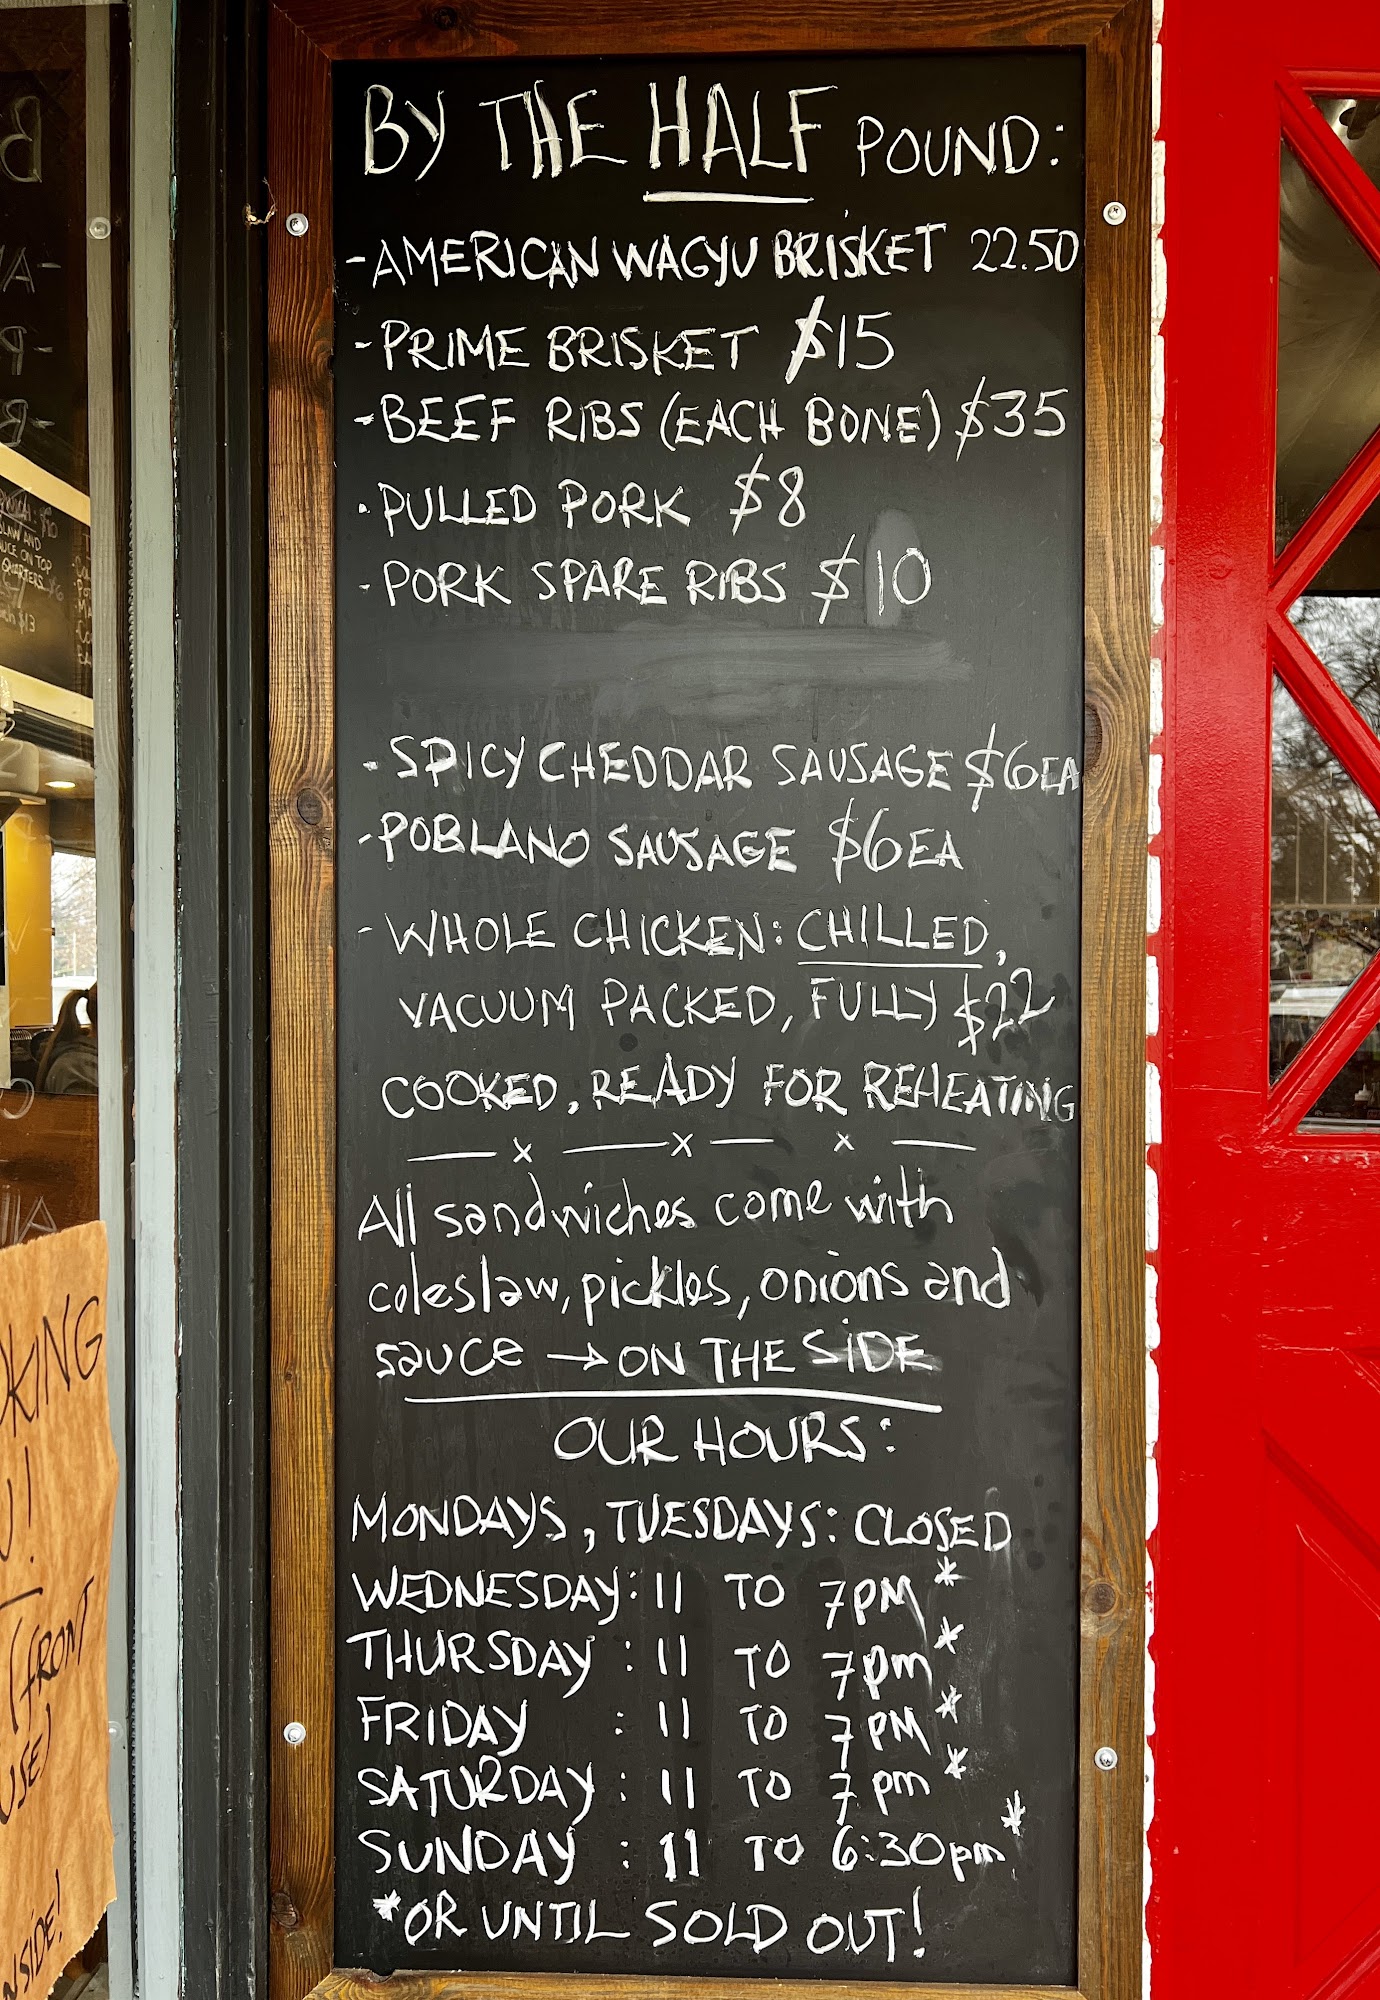 BY THE HALF POUND:
-AMERICAN WAGYU BRISKET 22.50
-PRIME BRISKET $15
-BEEF RIBS (EACH BONE) $35
-PULLED PORK $8
-PORK SPARE RIBS $10
-SPICY CHEDDAR SAUSAGE $6EA
-POBLANO SAUSAGE $6EA
-WHOLE CHICKEN: CHILLED,
VACUUM PACKED, FULLY $22
COOKED, READY FOR REHEATING
— x — x — x —
All sandwiches come with
coleslaw, pickles, onions and
sauce → ON THE SIDE
OUR HOURS:
MONDAYS, TUESDAYS: CLOSED
WEDNESDAY: 11 TO 7PM*
THURSDAY : 11 TO 7pm*
FRIDAY : 11 TO 7PM*
SATURDAY : 11 TO 7pm*
SUNDAY : 11 TO 6:30pm*
*OR UNTIL SOLD OUT!
KING
U!
(FRONT
USE)
NSIDE!
SLAW AND
UCE ON TOP
QUARTERS
$13